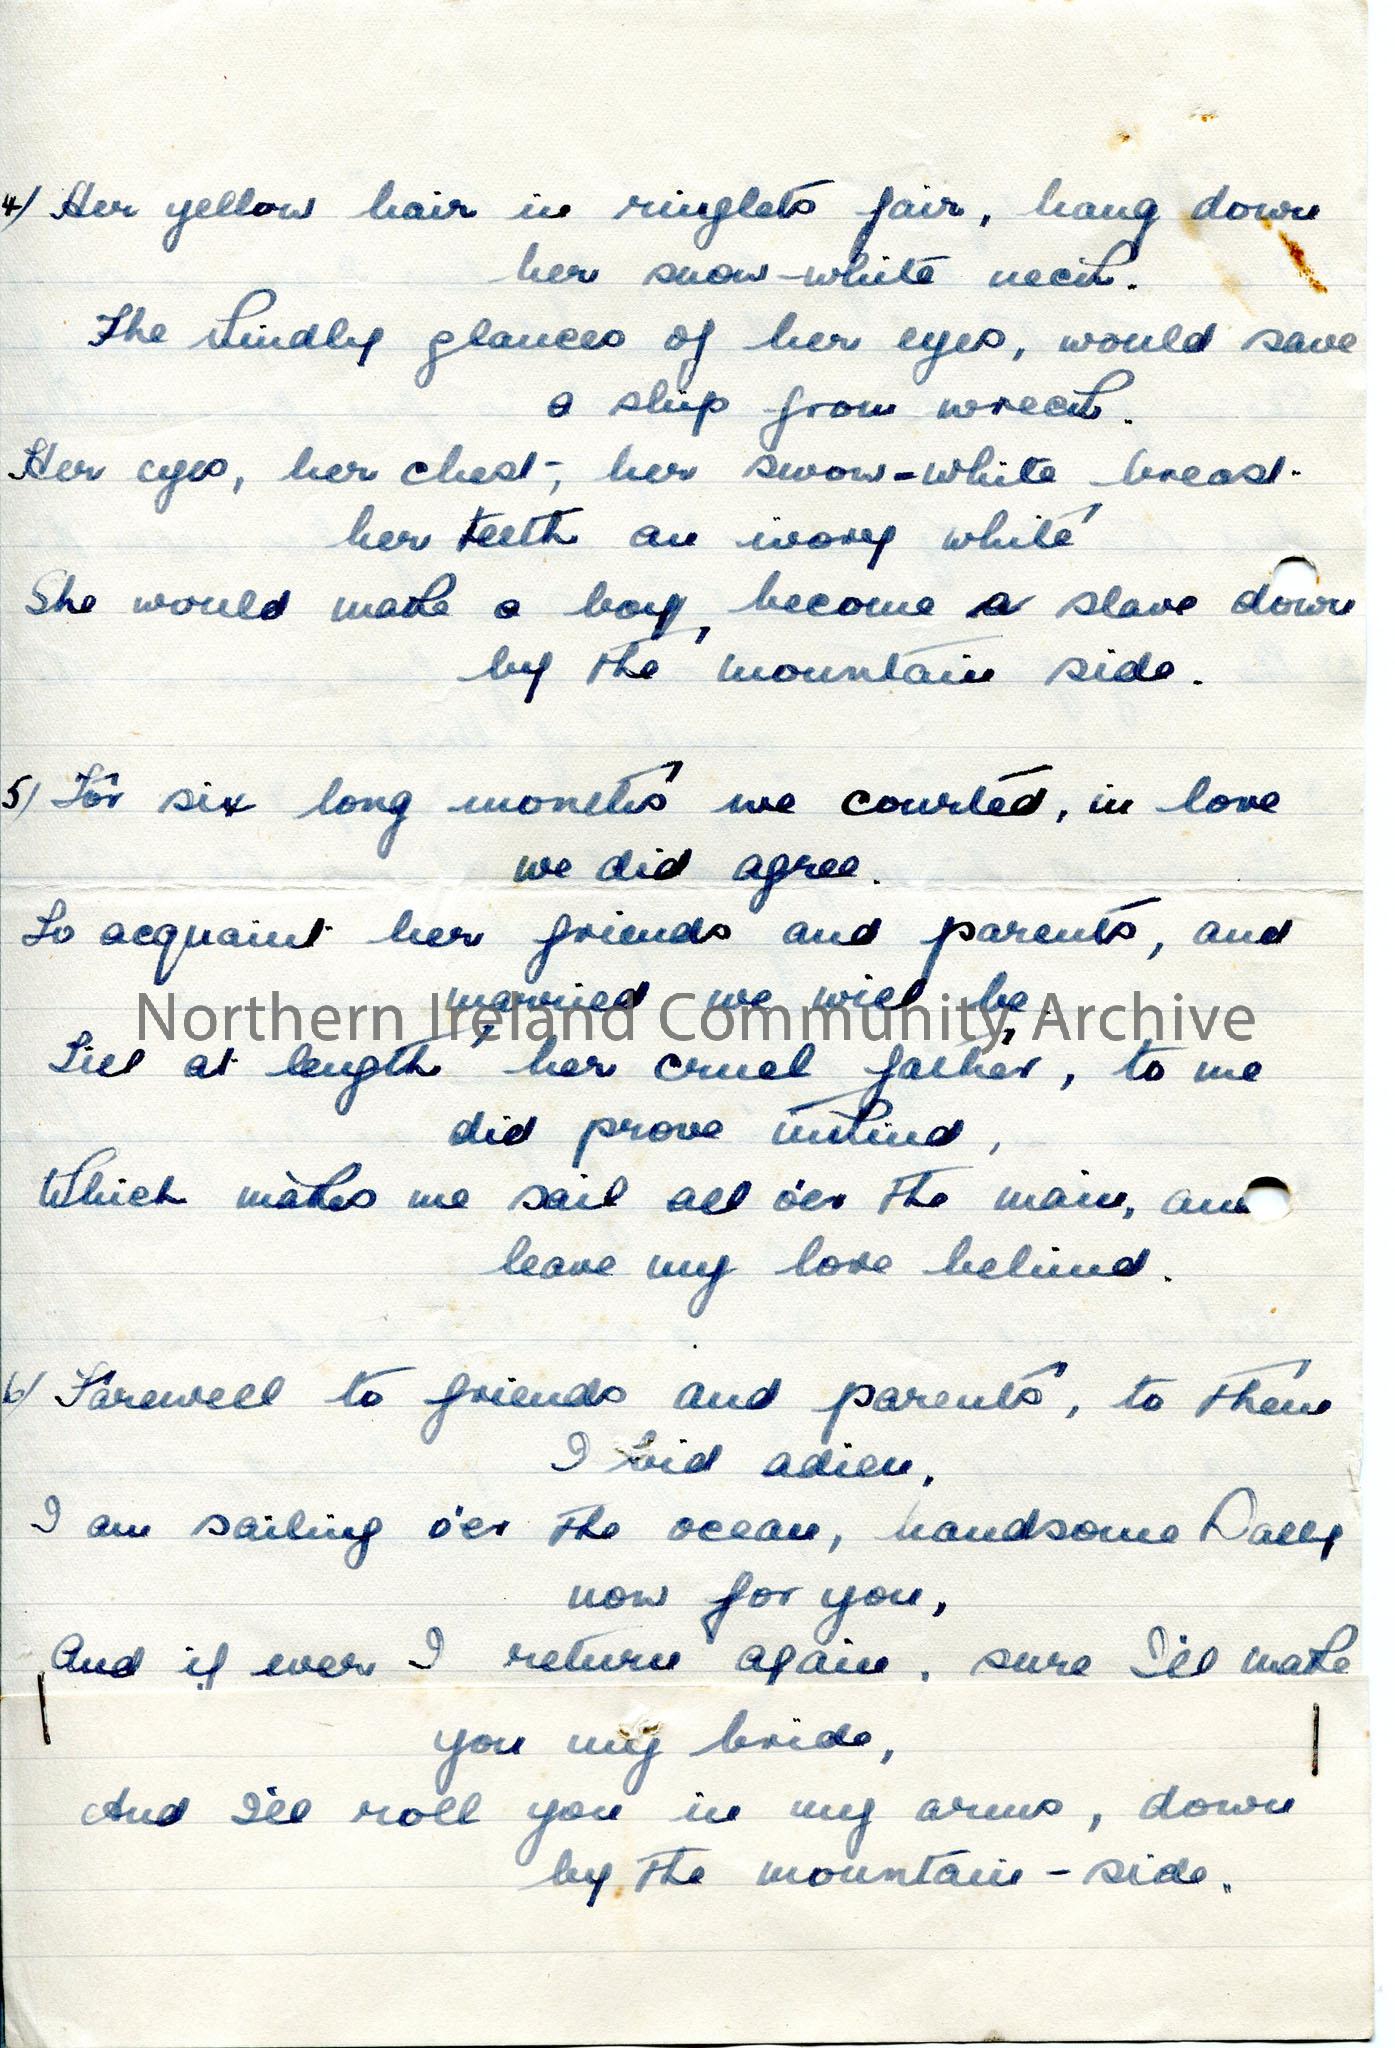 4/ Her yellow hair in ringlets fair, hang down
her snow-white neck.
The kindly glances of her eyes, would save
a ship from wreck.
Her eyes, her chest, her swow-white breast
her teeth an ivory white
She would make a boy, become a slave down
by the mountain side.
5/ For six long months we courted, in love
we did agree.
To acquaint her friends and parents, and
married we will be
Northern Ireland Community Archive
Till at length her cruel father, to me
did prove unkind,
Which makes me sail all o'er the main, and
leave my love behind.
6/ Farewell to friends and parents, to them
I bid adieu,
I am sailing o'er the ocean, handsome Dally
now for you,
And if ever I return again, sure I'll make
you my bride,
And I'll roll you in my arms, down
by the mountain-side.